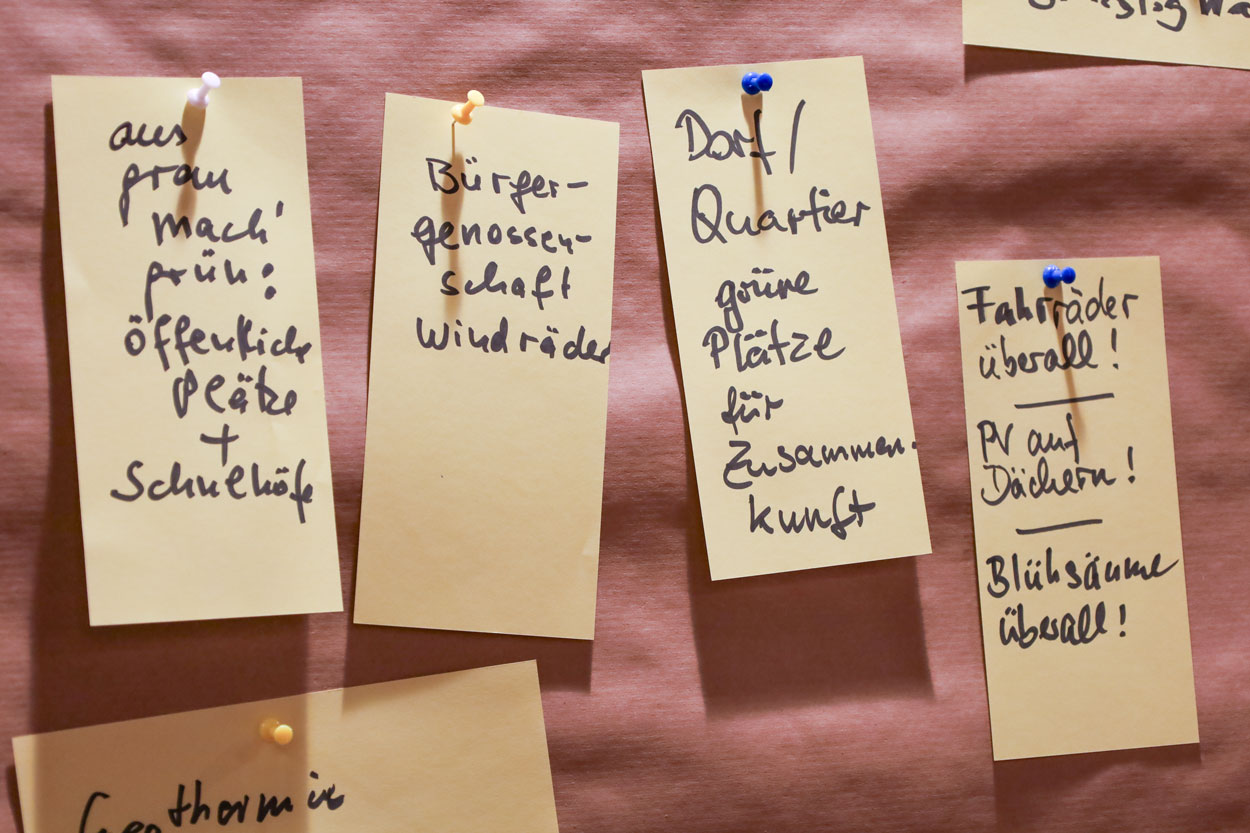 aus
grau
mach'
grün:
öffentliche
Plätze
+
Schulhöfe
Bürger-
genossen-
schaft
Windräder
Dorf/
Quartier
grüne
Plätze
für
Zusammen-
kunft
Fahrräder
überall!
PV auf
Dächern!
Blühsäume
überall!
Geothermie